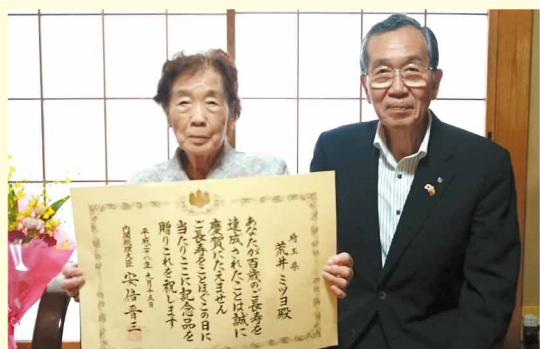 埼玉県
荒井ミツヨ殿
あなたが百歳のご長寿を
達成されたことは誠に
慶賀にたえません
ご長寿をことほぐこの日に
当たりここに記念品を
贈りこれを祝します
平成二十八年九月十五日
内閣総理大臣 安倍晋三